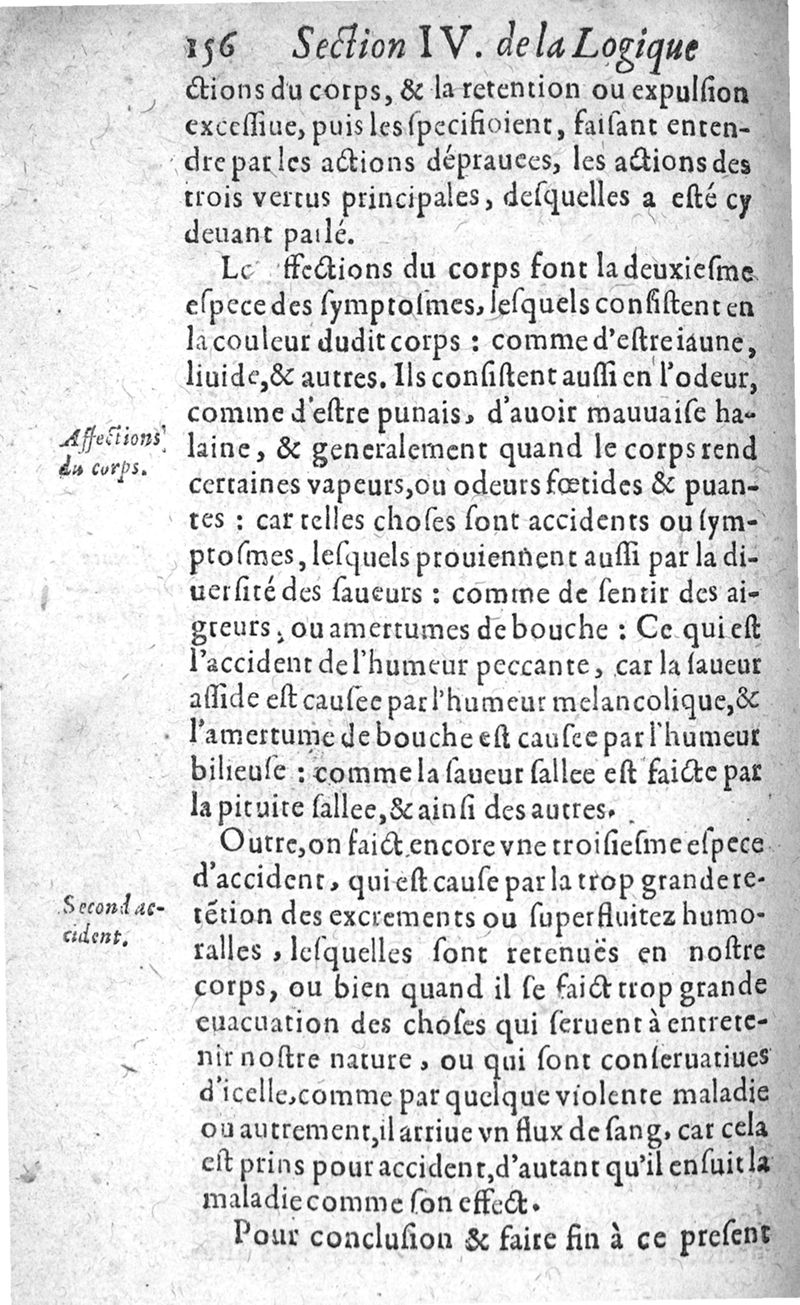 156 Section IV. de la Logique
ctions du corps, & la retention ou expulſion
exceſſiue, puis les ſpecifioient, faiſant enten-
dre par les actions déprauees, les actions des
trois vertus principales, deſquelles a eſté cy
deuant parlé.
Le ffections du corps ſont la deuxieſme
eſpece des ſymptoſmes, leſquels conſiſtent en
la couleur dudit corps : comme d'eſtre iaune,
liuide, & autres. Ils conſiſtent auſſi en l'odeur,
comme d'eſtre punais, d'auoir mauuaiſe ha-
Affections
laine, & generalement quand le corps rend
du corps.
certaines vapeurs, ou odeurs fœtides & puan-
tes : car telles choſes ſont accidents ou ſym-
ptoſmes, leſquels prouiennent auſſi par la di-
uerſité des ſaueurs : comme de ſentir des ai-
greurs, ou amertumes de bouche : Ce qui eſt
l'accident de l'humeur peccante, car la ſaueur
aſſide eſt cauſée par l'humeur melancolique, &
l'amertume de bouche eſt cauſee par l'humeur
bilieuſe : comme la ſaueur ſallee eſt faicte par
la pituite ſallee, & ainſi des autres.
Outre, on faict encore vne troiſieſme eſpece
d'accident, qui eſt cauſe par la trop grande re-
Second ac-
tētion des excrements ou ſuperfluitez humo-
cident.
ralles, leſquelles ſont retenuës en noſtre
corps, ou bien quand il ſe faict trop grande
euacuation des choſes qui ſeruent à entrete-
nir noſtre nature, ou qui ſont conſeruatiues
d'icelle, comme par quelque violente maladie
ou autrement, il arriue vn flux de ſang, car cela
eſt prins pour accident, d'autant qu'il enſuit la
maladie comme ſon effect.
Pour concluſion & faire fin à ce preſent